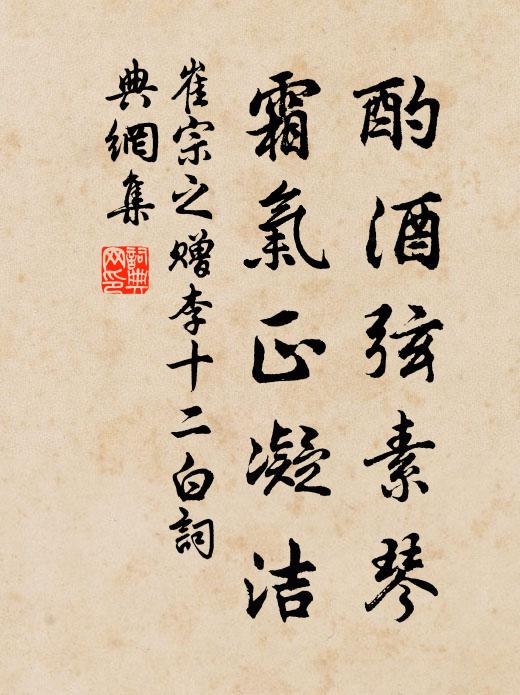 酌酒弦素琴
霜氣正凝洁
崔宗之赠李十二白詞
典網集
詞典
网印